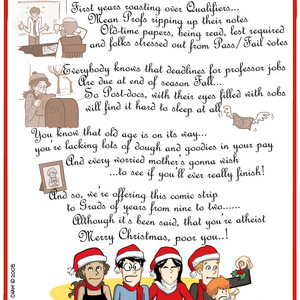 First years roasting over Qualifiers...
Mean Profs ripping up their notes
Old-time papers, being read, lest required
and folks stressed out from Pass/Fail votes
Everybody knows that deadlines for professor jobs
Are due at end of season Fall...
So Post-docs, with their eyes filled with sobs
will find it hard to sleep at all
You know that old age is on its way...
you're lacking lots of dough and goodies in your pay
And every worried mother's gonna wish
...to see if you'll ever really finish!
And so, we're offering this comic strip
to Grads of years from nine to two......
Although it's been said, that you're atheist
Merry Christmas, poor you..!